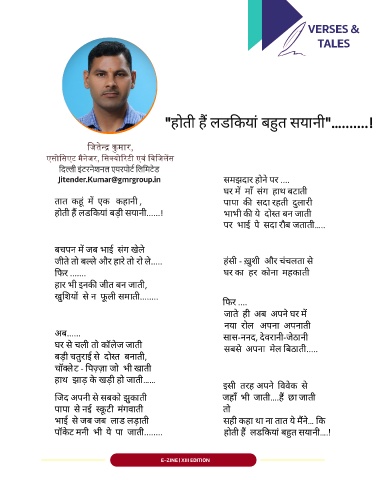 VERSES &
TALES
"होती हैं लडकियां बहुत सयानी"..........!
जितेन्द्र कुमार,
एसोसिएट मैनेजर, सिक्योरिटी एवं विजिलेंस
दिल्ली इंटरनेशनल एयरपोर्ट लिमिटेड
Jitender.Kumar@gmrgroup.in
तात कहूं में एक कहानी ,
होती हैं लडकियां बड़ी सयानी......!
बचपन में जब भाई संग खेले
जीते तो बल्ले और हारे तो रो ले.....
फिर .......
हार भी इनकी जीत बन जाती,
खुशियों से न फूली समाती........
अब......
घर से चली तो कॉलेज जाती
बड़ी चतुराई से दोस्त बनाती,
चॉक्लेट - पिज़्ज़ा जो भी खाती
हाथ झाड़ के खड़ी हो जाती......
जिद अपनी से सबको झुकाती
पापा से नई स्कूटी मंगवाती
भाई से जब जब लाड लड़ाती
पॉकेट मनी भी ये पा जाती........
समझदार होने पर ....
घर में माँ संग हाथ बटाती
पापा की सदा रहती दुलारी
भाभी की ये दोस्त बन जाती
पर भाई पे सदा रौब जताती.....
हंसी - ख़ुशी और चंचलता से
घर का हर कोना महकाती
फिर ....
जाते ही अब अपने घर में
नया रोल अपना अपनाती
सास-ननद, देवरानी-जेठानी
सबसे अपना मेल बिठाती.....
इसी तरह अपने विवेक से
जहाँ भी जाती....हैं छा जाती
तो
सही कहा था ना तात ये मैंने... कि
होती हैं लडकियां बहुत सयानी....!
E-ZINE | XIII EDITION